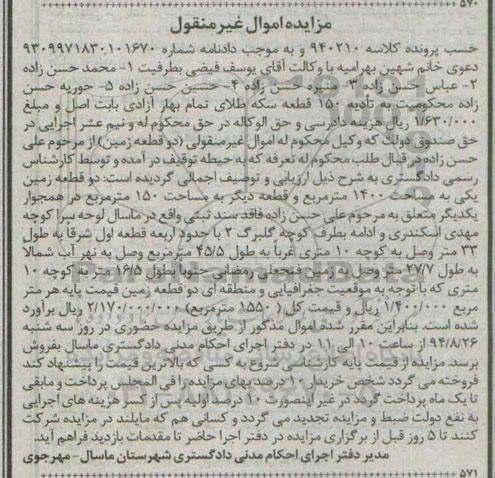 ۵۷۰
مزایده اموال غیرمنقول
حسب پرونده کلاسه ۹۴۰۲۱۰ و به موجب دادنامه شماره ۹۳۰۹۹۷۱۸۳۰۱۰۱۶۷۰
دعوی خانم شهین بهرامیه با وکالت آقای یوسف فیضی بطرفیت ۱- محمد حسن زاده
۲- عباس حسن زاده ۳- منیره حسن زاده ۴- حسین حسن زاده ۵- حوریه حسن
زاده محکومیت به تادیه ۱۵۰ قطعه سکه طلای تمام بهار آزادی بابت اصل و مبلغ
۱/۶۳۰/۰۰۰ ریال هزینه دادرسی و حق الوکاله در حق محکوم له و نیم عشر اجرایی در
حق صندوق دولت که وکیل محکوم له اموال غیرمنقولی (دو قطعه زمین) از مرحوم علی
حسن زاده در قبال طلب محکوم له تعرفه که به حیطه توقیف در آمده و توسط کارشناس
رسمی دادگستری به شرح ذیل ارزیابی و توصیف اجمالی گردیده است: دو قطعه زمین
یکی به مساحت ۱۴۰۰ مترمربع و قطعه دیگر به مساحت ۱۵۰ مترمربع در همجوار
یکدیگر متعلق به مرحوم علی حسن زاده فاقد سند ثبتی واقع در ماسال لوحه سرا کوچه
مهدی اسکندری و ادامه بطرف کوچه گلبرگ ۲ با حدود اربعه قطعه اول شرقا به طول
۳۳ متر وصل به کوچه ۱۰ متری غربا به طول ۴۵/۵ مترمربع وصل به نهر آب شمالا
به طول ۲۷/۷ متر وصل به زمین فتحعلی رمضانی جنوبا بطول ۱۶/۵ متر به کوچه ۱۰
متری که با توجه به موقعیت جغرافیایی و منطقه ای دو قطعه زمین قیمت پایه هر متر
مربع ۱/۴۰۰/۰۰۰ ریال و قیمت کل (۱۵۵۰ مترمربع) ۲/۱۷۰/۰۰۰/۰۰۰ ریال برآورد
شده است. بنابراین مقرر شده اموال مذکور از طریق مزایده حضوری در روز سه شنبه
۹۴/۸/۲۶ از ساعت ۱۰ الی ۱۱ در دفتر اجرای احکام مدنی دادگستری ماسال بفروش
برسد. مزایده از قیمت پایه کارشناسی شروع به کسی که بالاترین قیمت را پیشنهاد کند
فروخته می گردد شخص خریدار ۱۰ درصد بهای مزایده را فی المجلس پرداخت و مابقی
تا یک ماه پرداخت گردد در غیر اینصورت ۱۰ درصد اولیه پس از کسر هزینه های اجرایی
به نفع دولت ضبط و مزایده تجدید می گردد و کسانی هم که مایلند در مزایده شرکت
کنند تا ۵ روز قبل از برگزاری مزایده در دفتر اجرا حاضر تا مقدمات بازدید فراهم آید.
مدیر دفتر اجرای احکام مدنی دادگستری شهرستان ماسال- مهرجوی
۵۷۱